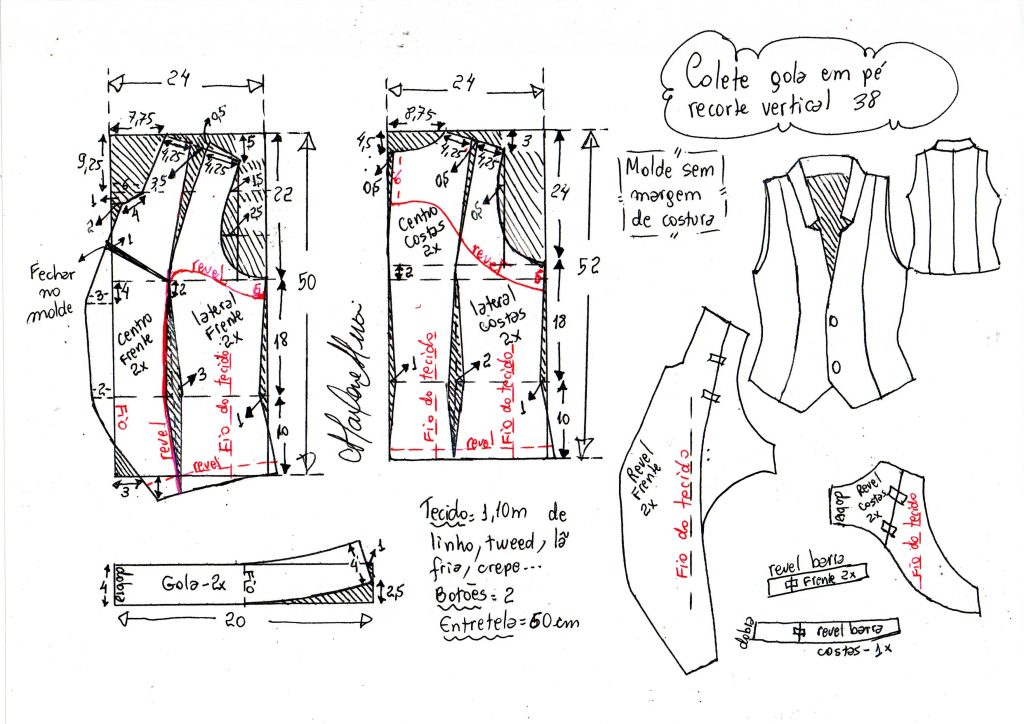 Colete gola em pé
recorte vertical 38
Molde sem
margem
de costura
24
7,75
0,5
9,25
4,25
4,25
5
3,5
1,5
2,5
22
6
1
2
4
1
Fechar
no
molde
revel
6
50
3
4
2
Centro
Frente
2x
lateral
Frente
2x
18
3
2
1
Fio
revel
Fio do tecido
10
revel
3
24
8,75
4,5
4,25
4,25
3
0,5
6
0,5
0,5
24
Centro
Costas
2x
revel
6
52
2
lateral
costas
2x
18
1
2
1
Fio do tecido
Fio do tecido
10
revel
Marlene Mukai
dobra
4
Gola-2x
Fio
4
1
2,5
20
Tecido= 1,10m de
linho, tweed, lã
fria, crepe...
Botões= 2
Entretela=60cm
Revel
Frente
2x
Fio do tecido
dobra
Revel
costas
2x
Fio do tecido
revel barra
Frente 2x
dobra
revel barra
costas-1x